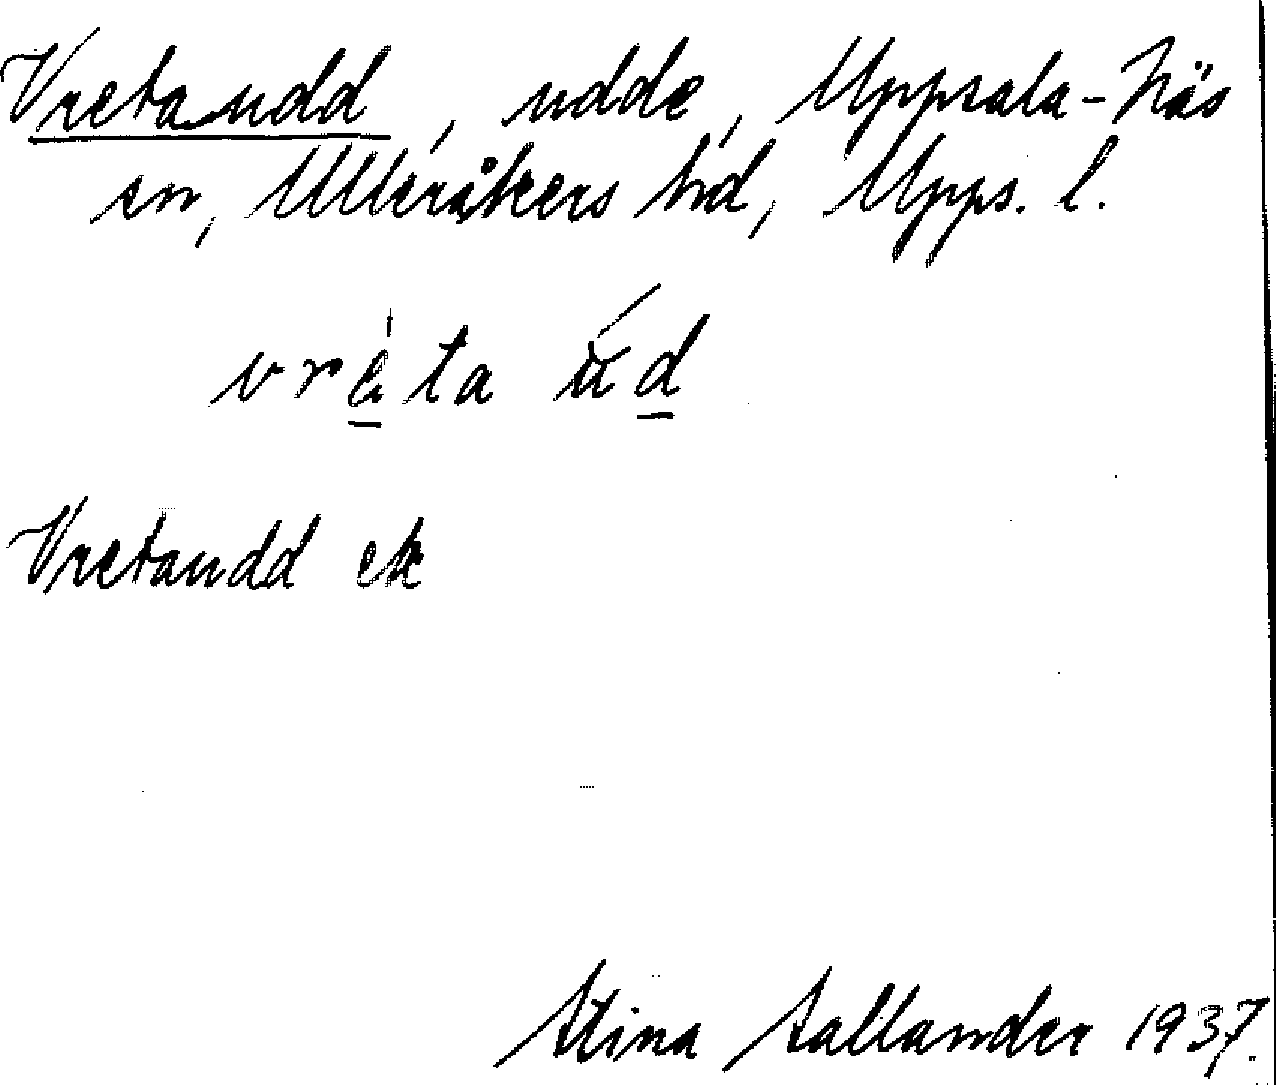 Vretaudd, udde, Uppsala-Näs
sn, Ulleråkers hd, Upps. l.
vre̲̍ta úd̲
Vretaudd ek
Stina Sallander 1937.